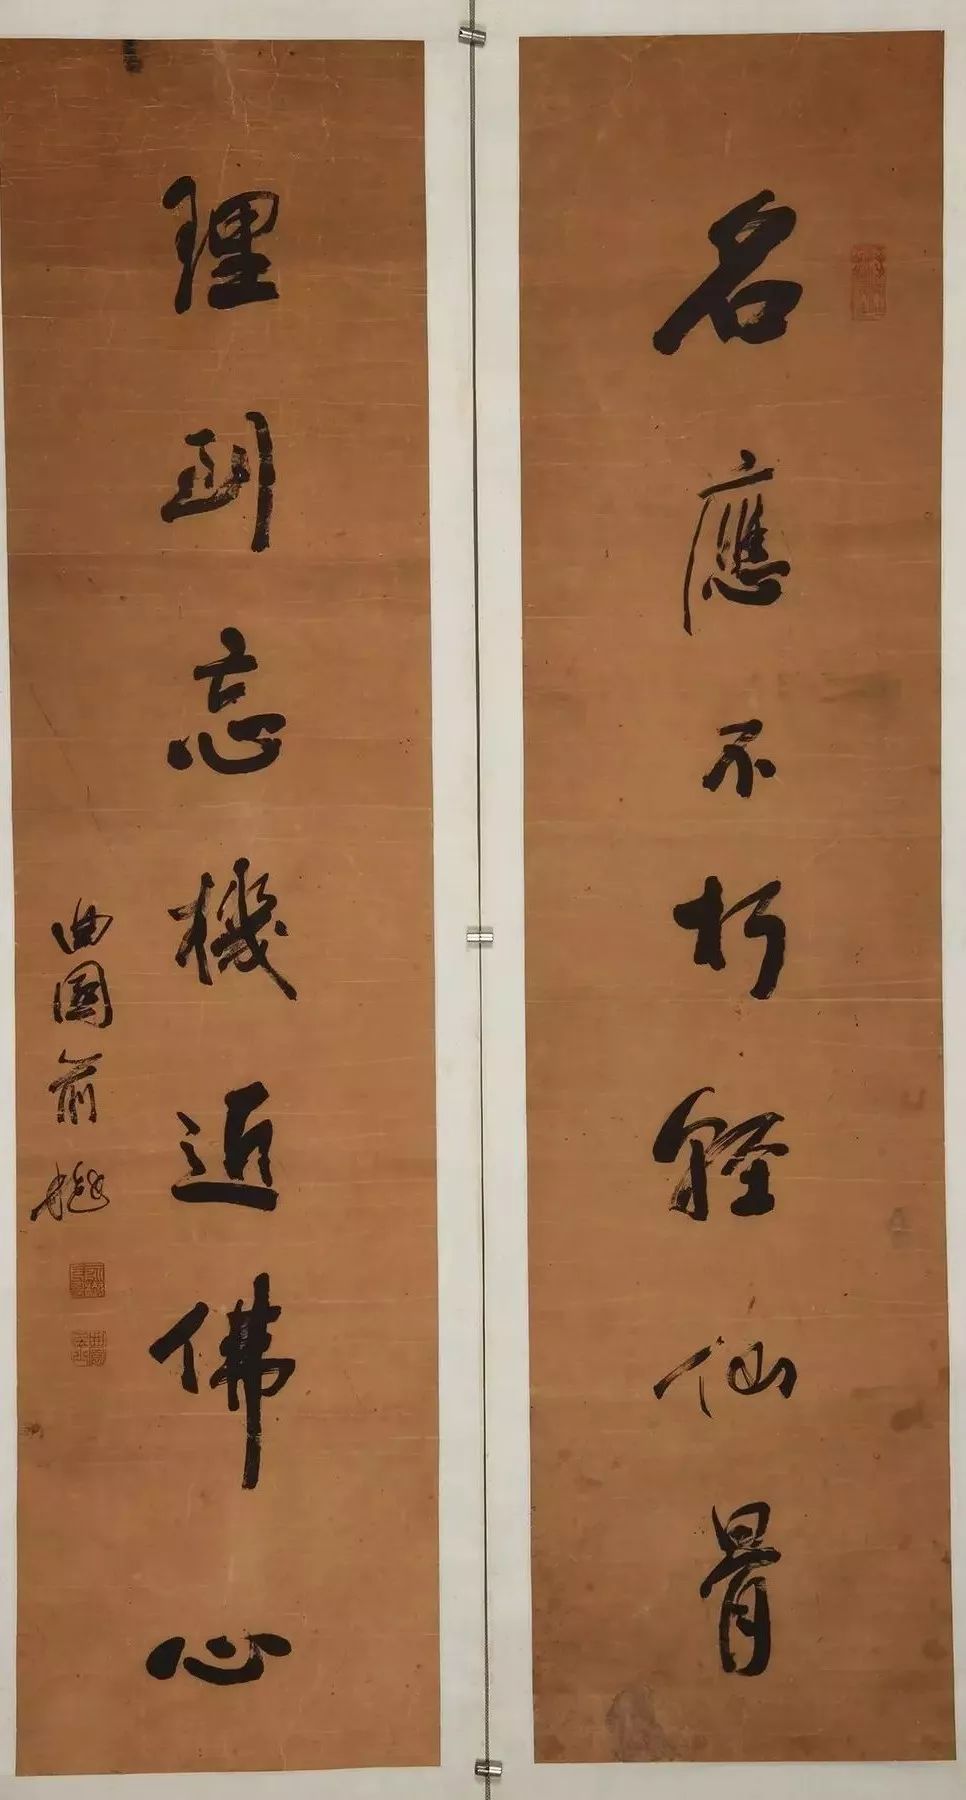 名應不朽輕仙骨
理到忘機近佛心
曲園俞樾